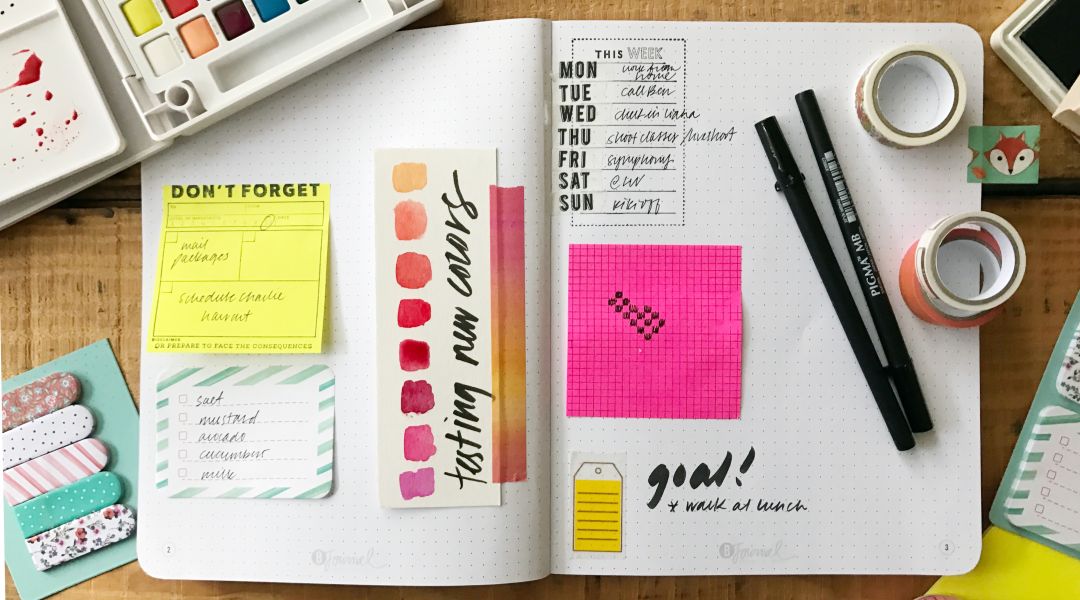 DON'T FORGET
mail
packages
schedule charlie
haircut
DISCLAIMER
OR PREPARE TO FACE THE CONSEQUENCES
salt
mustard
avocado
cucumber
milk
testing new colors
2
B Journal
THIS WEEK
MON work from home
TUE call Ben
WED check in w/
THU shoot classes /
FRI symphony
SAT @
SUN
PIGMA MB
goal!
* walk at lunch
B Journal
3